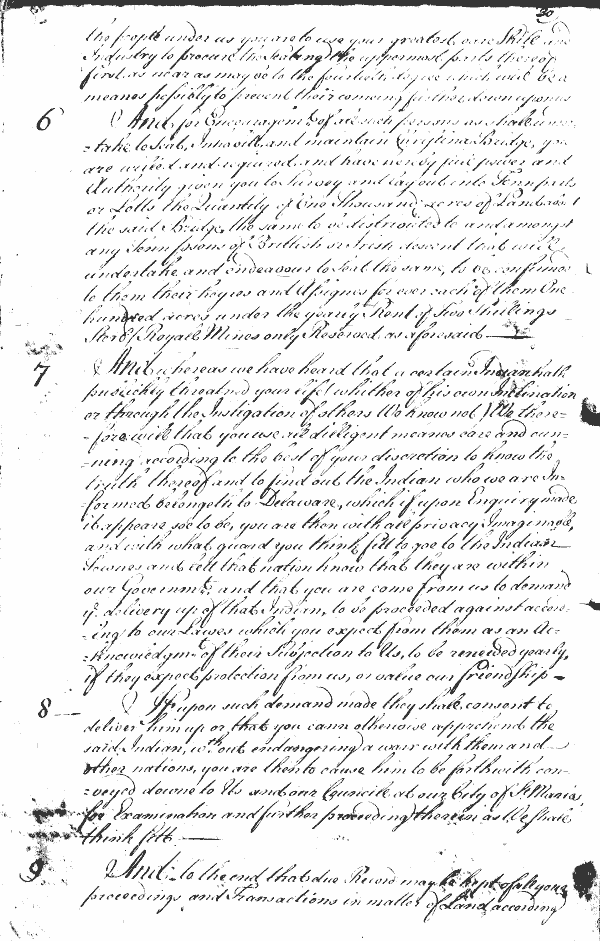 30
the people under us you are to use your greatest care Skill and
Industry to procure the Seating the uppermost parts thereof
first as near as may be to the fourtieth degree which will be a
means possibly to prevent their coming further down upon us
6 And for Encouragemt. of all such persons as shall under=
=take to Seat, Inhabitt, and maintain Christina Bridge, you
are willed and required and have hereby full power and
Authority given you to Survey and lay out into Tenn parts
or Lotts the Quantity of One Thousand acres of Land about
the said Bridge, the same to be distributed to and amongst
any Tenn psons of Brittish or Irish descent that will
undertake and endeavour to Seat the same, to be confirmed
to them their heyres and Assignes for ever each of them One
hundred acres under the yearly Rent of Two Shillings
Sterl/ Royall Mines only Reserved as aforesaid
7 And whereas we have heard that a certain Indian hath
publickly threatned your life (whither of his own inclination
or through the Instigation of others We know not) We there=
=fore will that you use all dilligent means care and cun=
=ning according to the best of your discretion to know the
truth thereof and to find out the Indian who we are In=
formed belongeth to Delaware, which if upon Enquiry made
it appeare soe to be, you are then with all privacy Imaginable,
and with what guard you think fitt to goe to the Indian
Townes and tell that nation know that they are within
our Governmt. and that you are come from us to demand
ye. delivery up of that Indian, to be proceeded against accor=
=ing to our Lawes which you expect from them as an Ac=
=knowledgmt. of their Subjection to Us, to be renewed yearly,
if they expect protection from us, or value our friendship
8 If upon such demand made they shall consent to
deliver him up or that you cann otherwise apprehend the
said Indian, wthout endangering a warr with them and
other nations, you are then to cause him to be forthwith con=
=veyed downe to Us and our Councill at our City of St. Maries,
for Examination and further proceeding therein as We shall
think fitt
9 And to the end that due Record may be kept of all your
proceedings and Transactions in matter of Land according